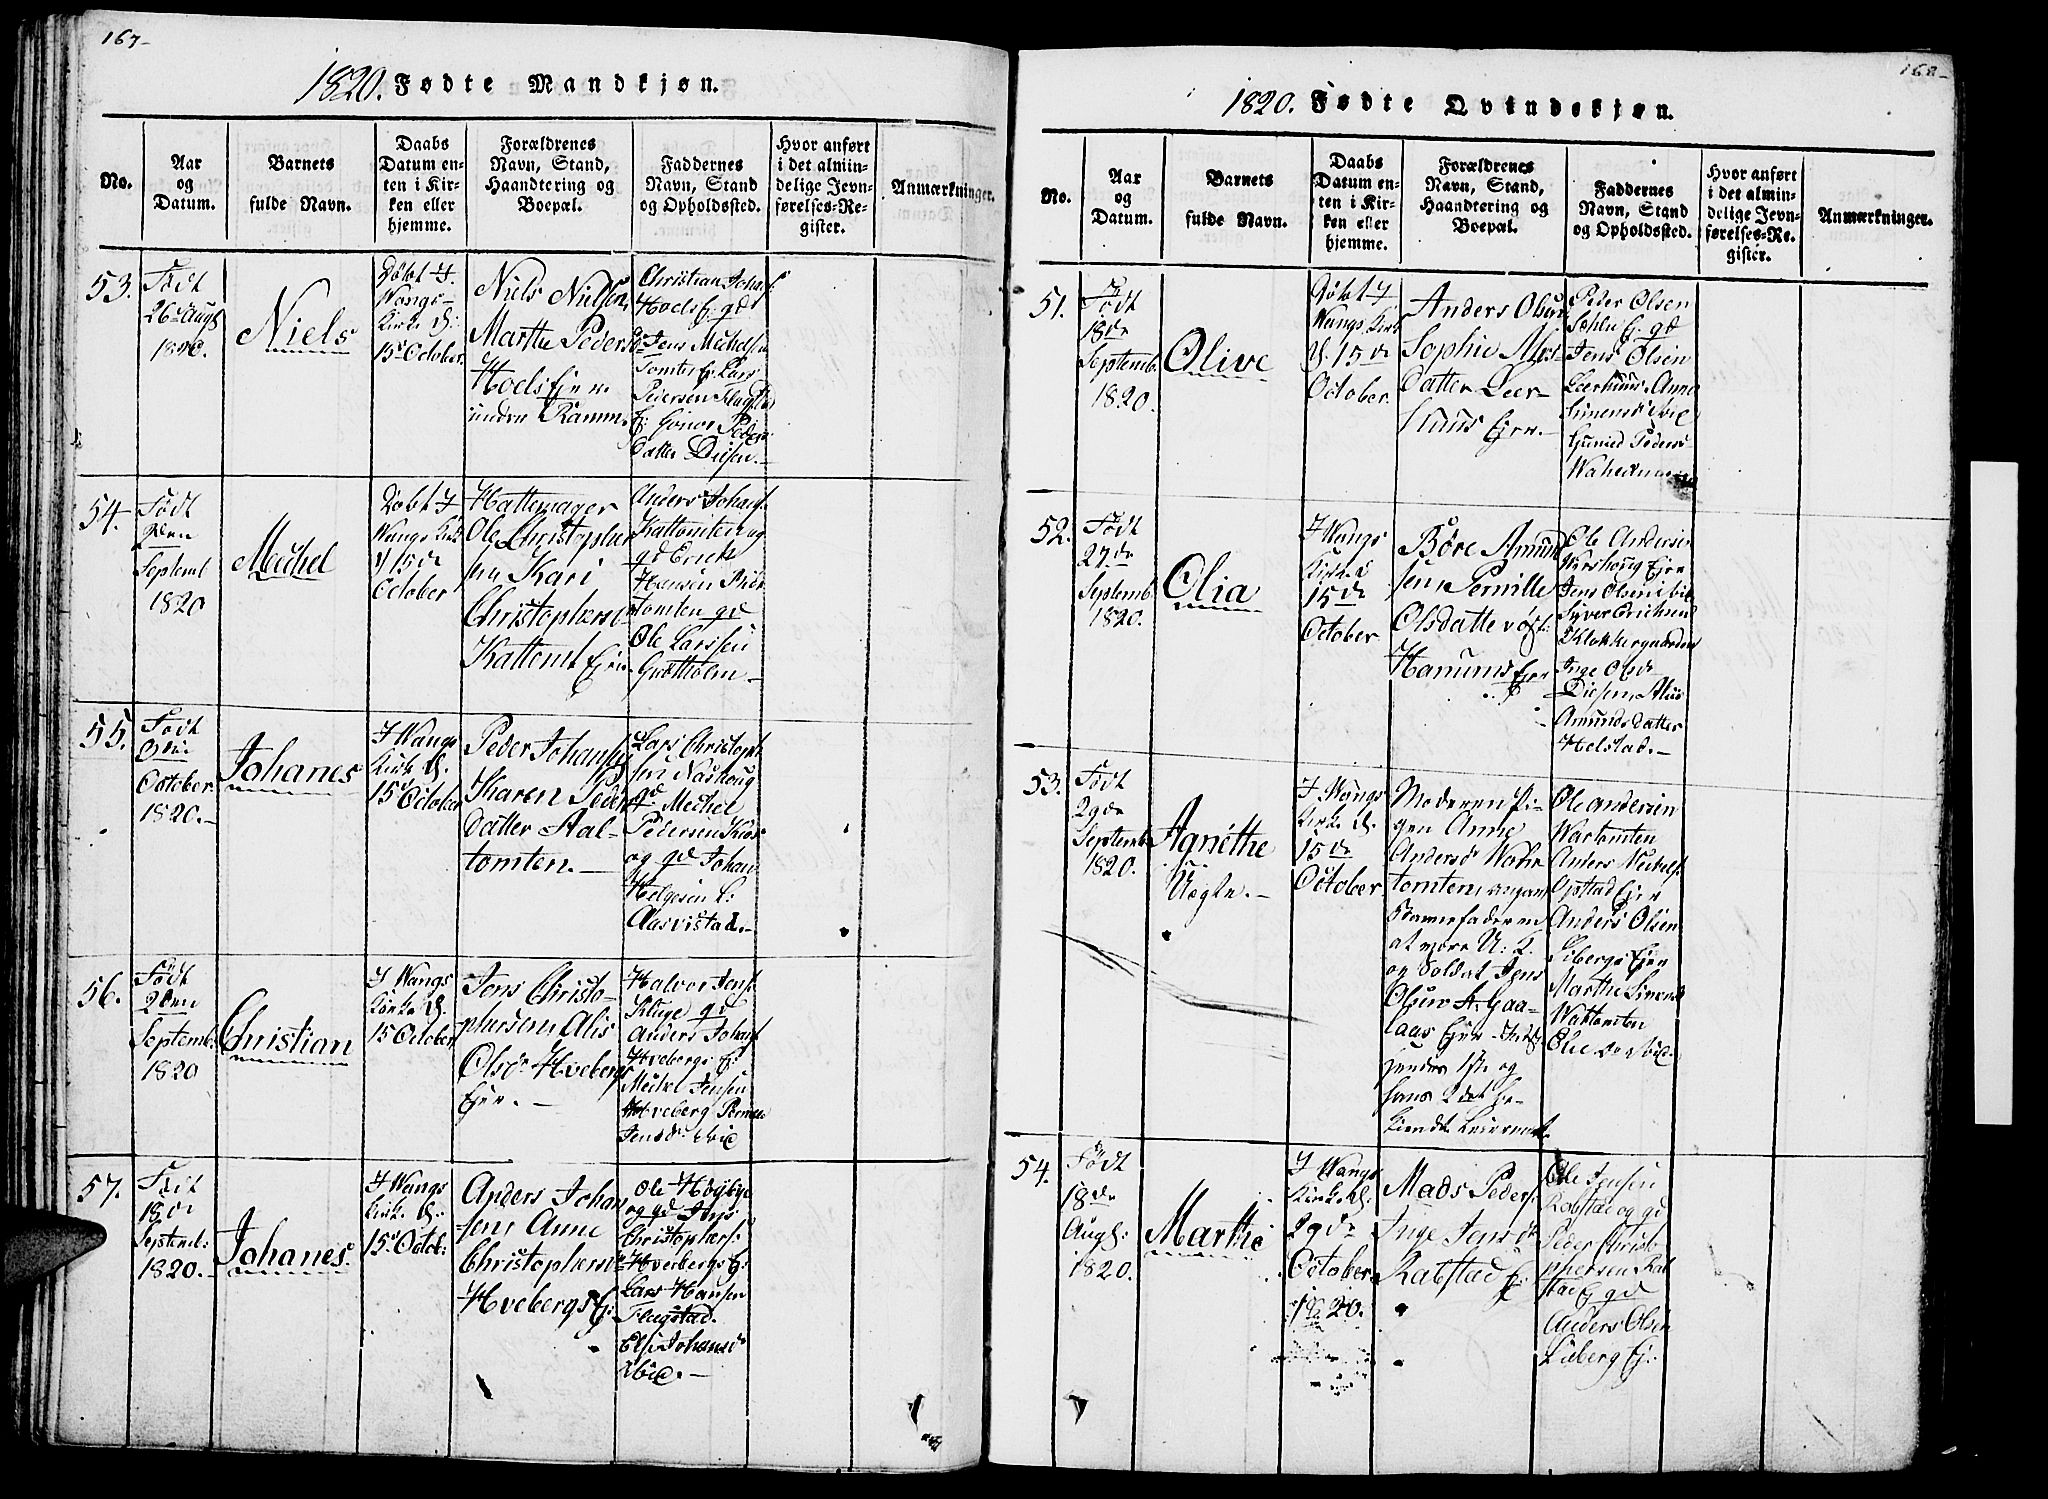 167-
1820. Fødte Mandkjøn.
No.
Aar
og
Datum.
Barnets
fulde Navn.
Daabs
Datum en-
ten i Kir-
ken eller
hjemme.
Forældrenes
Navn, Stand,
Haandtering og
Boepæl.
Faddernes
Navn, Stand
og Opholdssted.
Hvor anført
i det almin-
delige Jevn-
førelses-Re-
gister.
Anmærkninger.
53.
Födt
26 Augs
1820.
Niels
Döbt I
Wangs
Kirke d:
15 October
Niels Nielsen
Marthe Peders
Hoels Ejer
under Ramm.
Christian Johans
Hoels Ej: gd
Jens Michelsen
Tomter Ej. Lars
Pedersen Flagstad
Ej:
Datter Diesen.-
54.
Födt
Septembr
1820
Mechel
Döbt I
Wangs Kirk
d 15de
October
Hattemager
Ole Christopher
sen Kari
Christophersd
Kattomt Ejer
Anders Johans
Kattomten og
gd Erick
Hansen
Tomten gd
Ole Larssen
55.
Födt
October
1820.-
Johanes
I Wangs
Kirke d.
15 October
Peder Johansen
Karen Peder
datter Aal-
tomten.-
Lars Christoph
sen Nashoug
gd Mechel
Pedersen
og gd Johan
Helgesen
Aasvistad.-
56.
Födt
2den
Septemb:
1820
Christian
I Wangs
Kirke d.
15 October
Jens Christo-
phersen, Alis
Olsdr Hvebergs
Ejer.-
Halvor Jens
Kluge gd
Anders Johans
Hvebergs Ej
Mechel Jensen
Hveberg
Jensdr ibid
57.
Födt
18de
Septemb:
1820.-
Johanes.
I Wangs
Kirke d:
15 Octob:
Anders Johan
sen, Anne
Christophers
Hvebergs Ej:
Ole Högbye
og gd Jens
Christophers:
Hvebergs Ej:
Lars Hansen
Flagstad.
Else Johansd
ibid.-
168-
1820. Fødte Qvindekjøn.
No.
Aar
og
Datum.
Barnets
fulde Navn.
Daabs
Datum en-
ten i Kir-
ken eller
hjemme.
Forældrenes
Navn, Stand,
Haandtering og
Boepæl.
Faddernes
Navn, Stand
og Opholdssted.
Hvor anført
i det almin-
delige Jevn-
førelses-Re-
gister.
Anmærkninger.
51.
Födt
18de
Septemb.
1820.
Olive
Döbt I
Wangs Kirk
d. 15de
October
Anders Olsen
Sophie
datter Leer-
huus Ejer.-
Peder Olsen
Ej: gd
Jens Olsen
Leerhuus. Anne
Simensd ibid
Gunild Peders
52.
Födt
27de
Septemb.
1820.
Olia
I Wangs
Kirke d
15de
October
Böre Amund
sen, Pernille
Olsdatter
Hanums Ejer
Ole Andersen
Ejer
Jens Olsen ibid
Syver Ericksen
Klokkergaarden
Inge Olsd
Diesen,
Amundsdatter
Helstad.-
53.
Födt
29de
Septemb
1820.
Agnethe
Uægte.-
I Wangs
Kirke d.
15de
October.
Moderen Pi-
gen Anne
Andersd
tomten, angav
Barnefaderen
at være U: K.
og Soldat Jens
Olsen
laas Ejer
1ste og
hans 2det be-
kiendt Leiermaal.
Ole Andersen
Anders Michels:
Opstad Ejer
Anders Olsen
Libergs Ejer
Marthe Simensd
54.
Födt
18de
Augs:
1820.
Marthe
I Wangs
Kirke d:
29de
October
1820.
Mads Peders:
Inge Jensdr
Rabstad Ej:
Ole Jensen
Rabstad og gd
Peder Christo
phersen Rab
stad Ej gd
Anders Olsen
Liberg Ej: